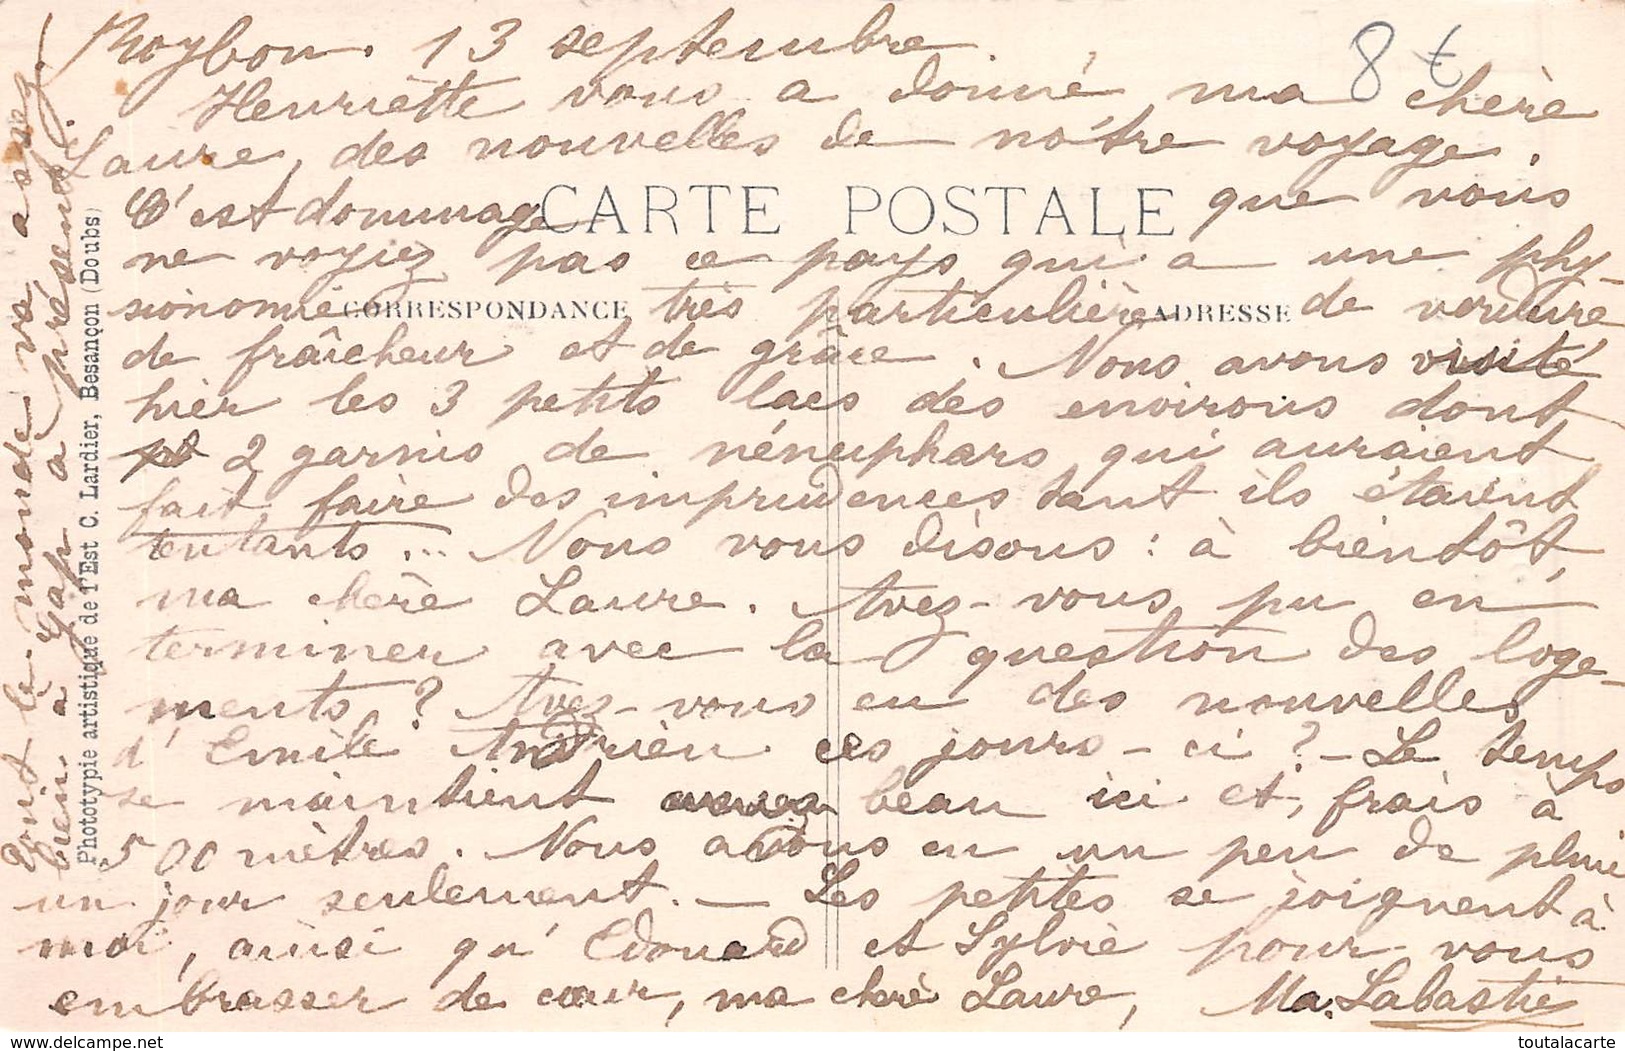 Roybon. 13 septembre.
8 €
Henriette vous a donné ma chère
Laure, des nouvelles de notre voyage.
C'est dommage que vous
CARTE POSTALE
ne voyiez pas ce pays qui a une phy-
sionomie très particulière de verdure
CORRESPONDANCE
ADRESSE
de fraîcheur et de grâce. Nous avons visité
hier les 3 petits lacs des environs dont
2 garnis de nénuphars qui auraient
fait faire des imprudences tant ils étaient
tentants... Nous vous disons : à bientôt,
ma chère Laure. Avez-vous pu en
terminer avec la question des loge-
ments ? Avez-vous eu des nouvelles
d'Emile Andrieu ces jours-ci ? - Le temps
se maintient beau ici et, frais à
500 mètres. Nous avons eu un peu de pluie
un jour seulement. — Les petites se joignent à
moi, ainsi qu'Edouard et Sylvie pour vous
embrasser de cœur, ma chère Laure, Ma. Labastie
Tout le monde va assez
bien à Gap à présent.
Phototypie artistique de l'Est C. Lardier, Besançon (Doubs)
www.delcampe.net
toutalacarte